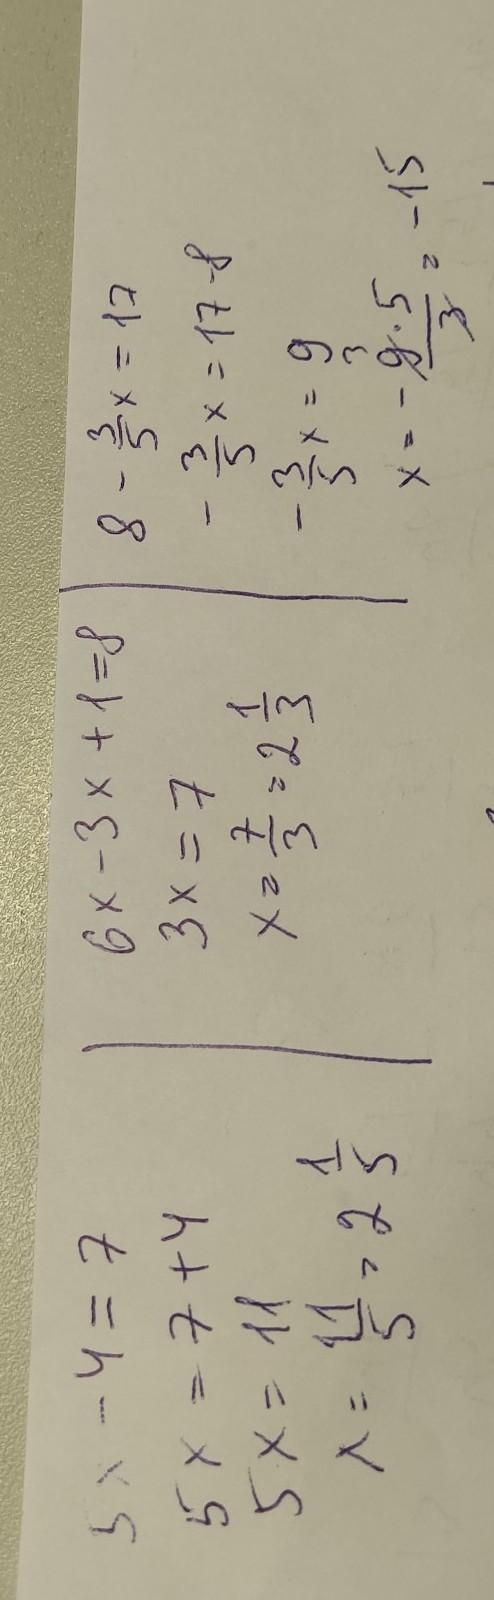 5x - 4 = 7
5x = 7 + 4
5x = 11
x = 11/5 = 2 1/5
6x - 3x + 1 = 8
3x = 7
x = 7/3 = 2 1/3
8 - 3/5 x = 17
- 3/5 x = 17 - 8
- 3/5 x = 9
x = - 9·5/3 = -15